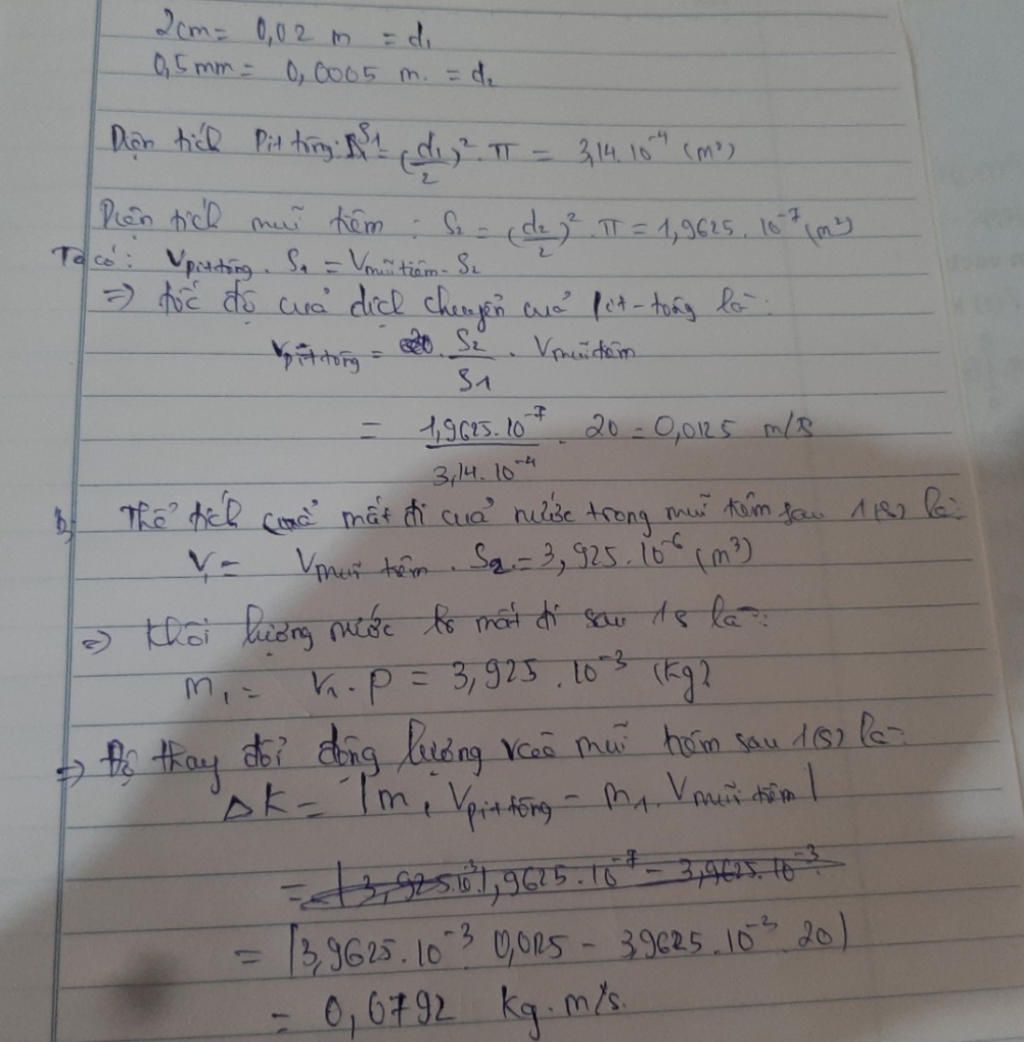 2cm = 0,02 m = d₁
0,5mm = 0,0005 m. = d₂
Diện tích Pit tông: S1 = (d₁/2)². π = 3,14.10⁻⁴ (m²)
Diện tích mũi tiêm : S₂ = (d₂/2)². π = 1,9625. 10⁻⁷ (m²)
Ta có: Vpittông. S₁ = Vmũi tiêm. S₂
=> tốc độ của dịch chuyển của pit-tông là:
Vpit tông = S₂/S1 . Vmũi tiêm
= 1,9625.10⁻⁷/3,14.10⁻⁴ . 20 = 0,0125 m/s
b, Thể tích mất đi của nước trong mũi tiêm sau 1(s) là:
V₁ = Vmũi tiêm . S₂ = 3,925.10⁻⁶ (m³)
=> Khối lượng nước mất đi sau 1s là:
m₁ = V₁.ρ = 3,925.10⁻³ (kg)
=> Độ thay đổi động lượng mũi tiêm sau 1(s) là:
ΔK = |m₁ Vpit tông - m₁. Vmũi tiêm|
= |3,9625.10⁻³ 0,0125 - 3,9625.10⁻³. 20|
= 0,0792 kg.m/s.